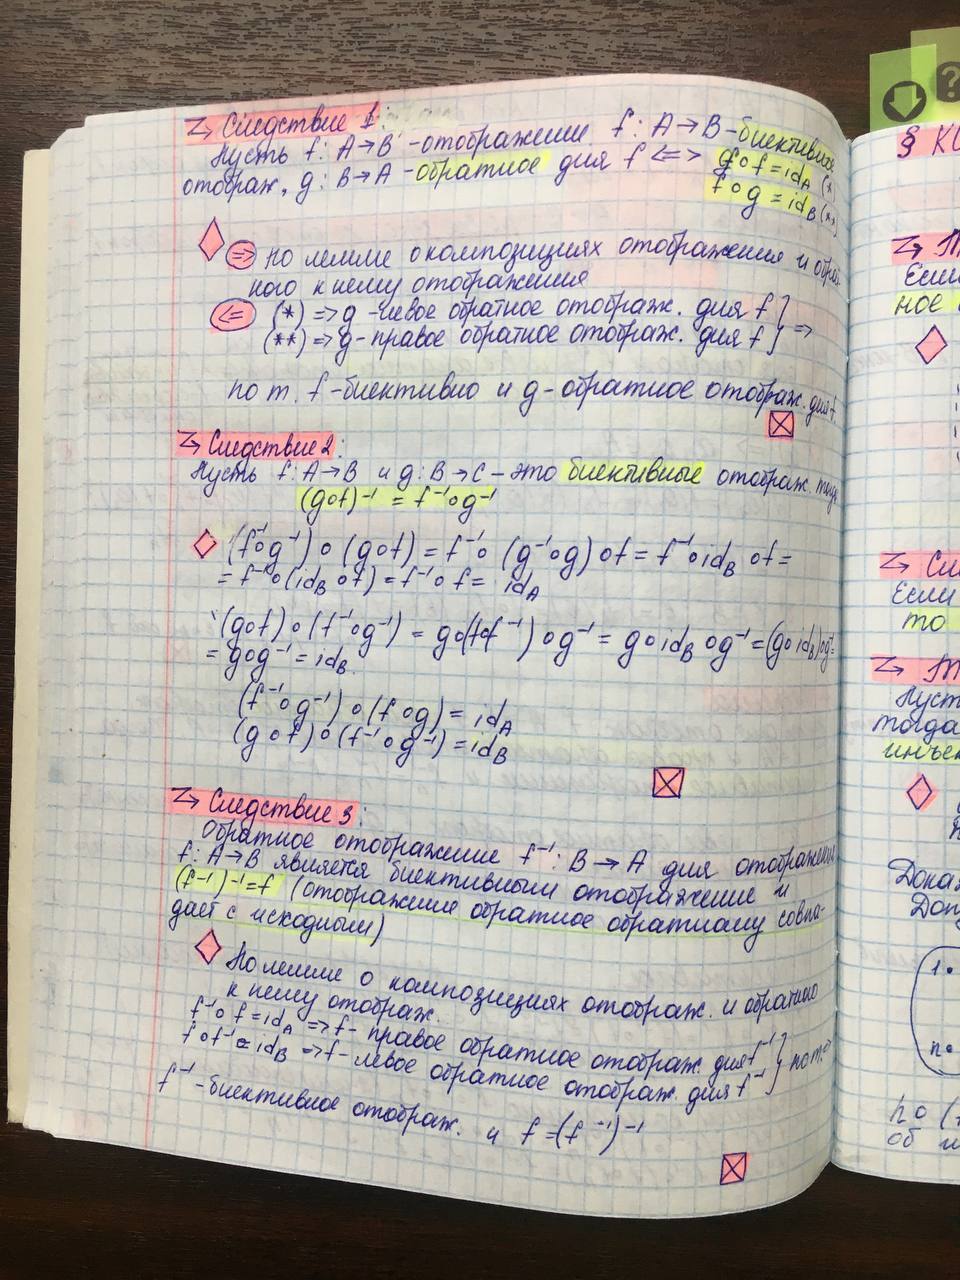 Следствие 1:
Пусть f: A→B - отображение f: A→B - биективное
отображ, g: B→A - обратное для f <=> g∘f = id_A (*
f∘g = id_B (**)
=> по лемме о композициях отображения и обрат
ного к нему отображения
<= (*) => g - левое обратное отображ. для f } =>
(**) => g - правое обратное отображ. для f
по т. f - биективно и g - обратное отображ. для f.
Следствие 2:
Пусть f: A→B и g: B→C - это биективные отображ. тогда
(g∘f)⁻¹ = f⁻¹∘g⁻¹
(f⁻¹∘g⁻¹)∘(g∘f) = f⁻¹∘(g⁻¹∘g)∘f = f⁻¹∘id_B∘f =
= f⁻¹∘(id_B∘f) = f⁻¹∘f = id_A
(g∘f)∘(f⁻¹∘g⁻¹) = g∘(f∘f⁻¹)∘g⁻¹ = g∘id_B∘g⁻¹ = (g∘id_B)∘g⁻¹ =
= g∘g⁻¹ = id_B.
(f⁻¹∘g⁻¹)∘(f∘g) = id_A
(g∘f)∘(f⁻¹∘g⁻¹) = id_B
Следствие 3:
Обратное отображение f⁻¹: B→A для отображения
f: A→B является биективным отображение и
(f⁻¹)⁻¹=f (отображение обратное обратному совпа-
дает с исходным)
По лемме о композициях отображ. и обратного
к нему отображ.
f⁻¹∘f = id_A => f - правое обратное отображ. для f⁻¹ } по т.=>
f∘f⁻¹ = id_B => f - левое обратное отображ. для f⁻¹
f⁻¹ - биективное отображ. и f = (f⁻¹)⁻¹
§ КО
Если
ное
Если
то
Пусть
тогда
инъек
Дока
Доп
1.
n.
по (
об
?